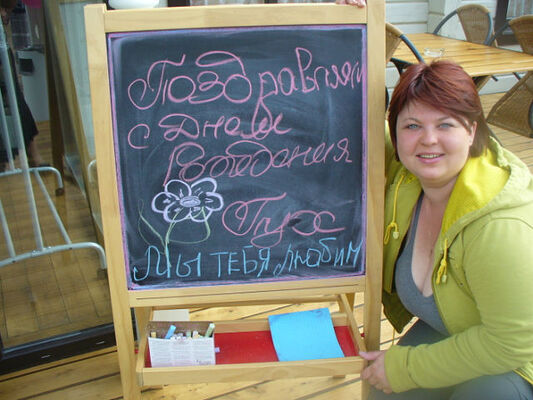 Поздравляем
с Днем
Рождения
Тусс
Мы ТЕБЯ любим